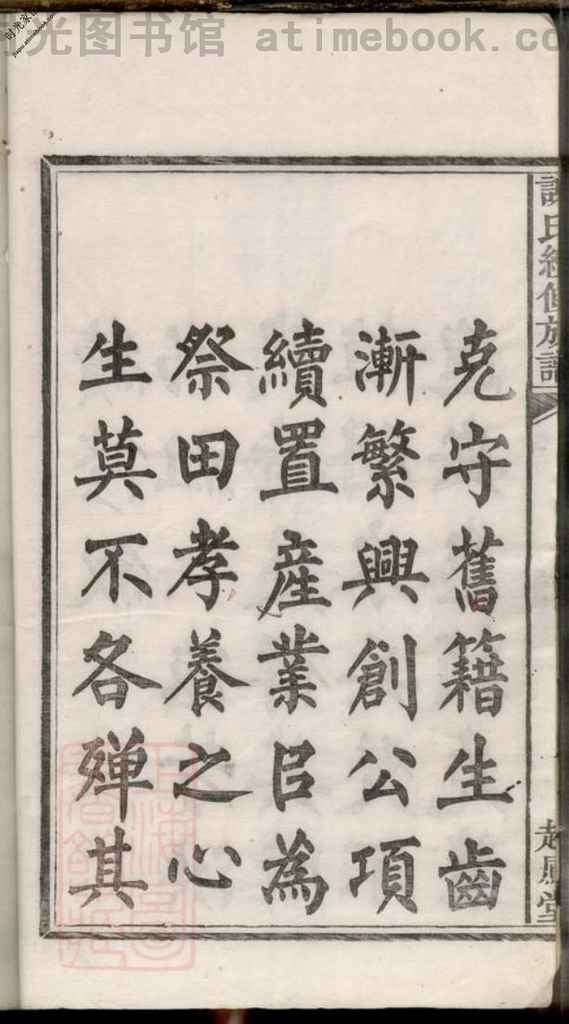 光图书馆 atimebook.co
氏續修族譜
克守舊籍生齒
漸繁興創公項
續置產業㠯為
祭田孝養之心
生莫不各殫其
起鳳堂